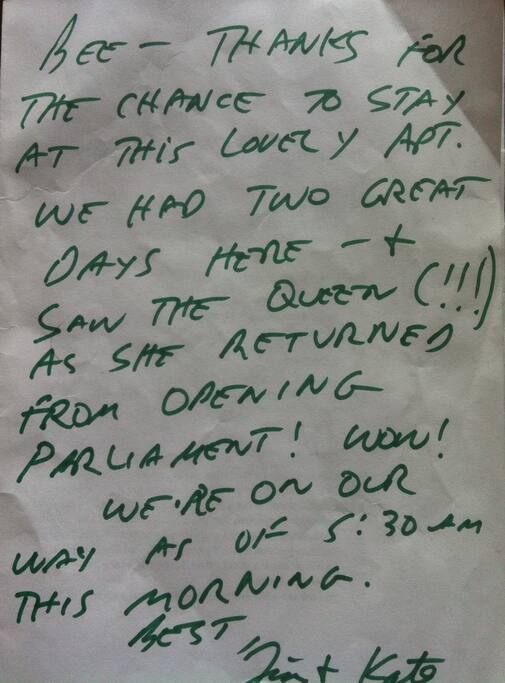 BEE — THANKS FOR
THE CHANCE TO STAY
AT THIS LOVELY APT.
WE HAD TWO GREAT
DAYS HERE — +
SAW THE QUEEN (!!!)
AS SHE RETURNED
FROM OPENING
PARLIAMENT! WOW!
WE'RE ON OUR
WAY AS OF 5:30 AM
THIS MORNING.
BEST
Jim + Kate